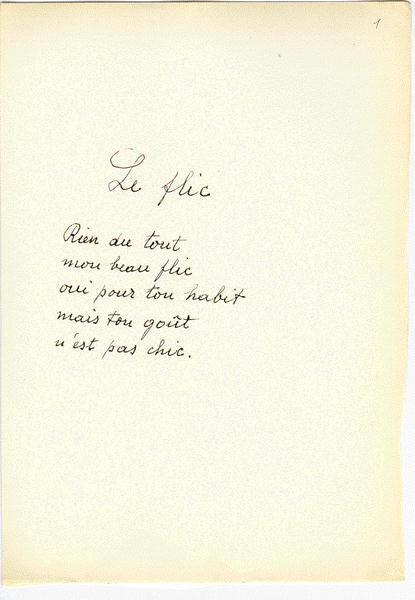 1
Le flic
Rien du tout
mon beau flic
oui pour ton habit
mais ton goût
n'est pas chic.